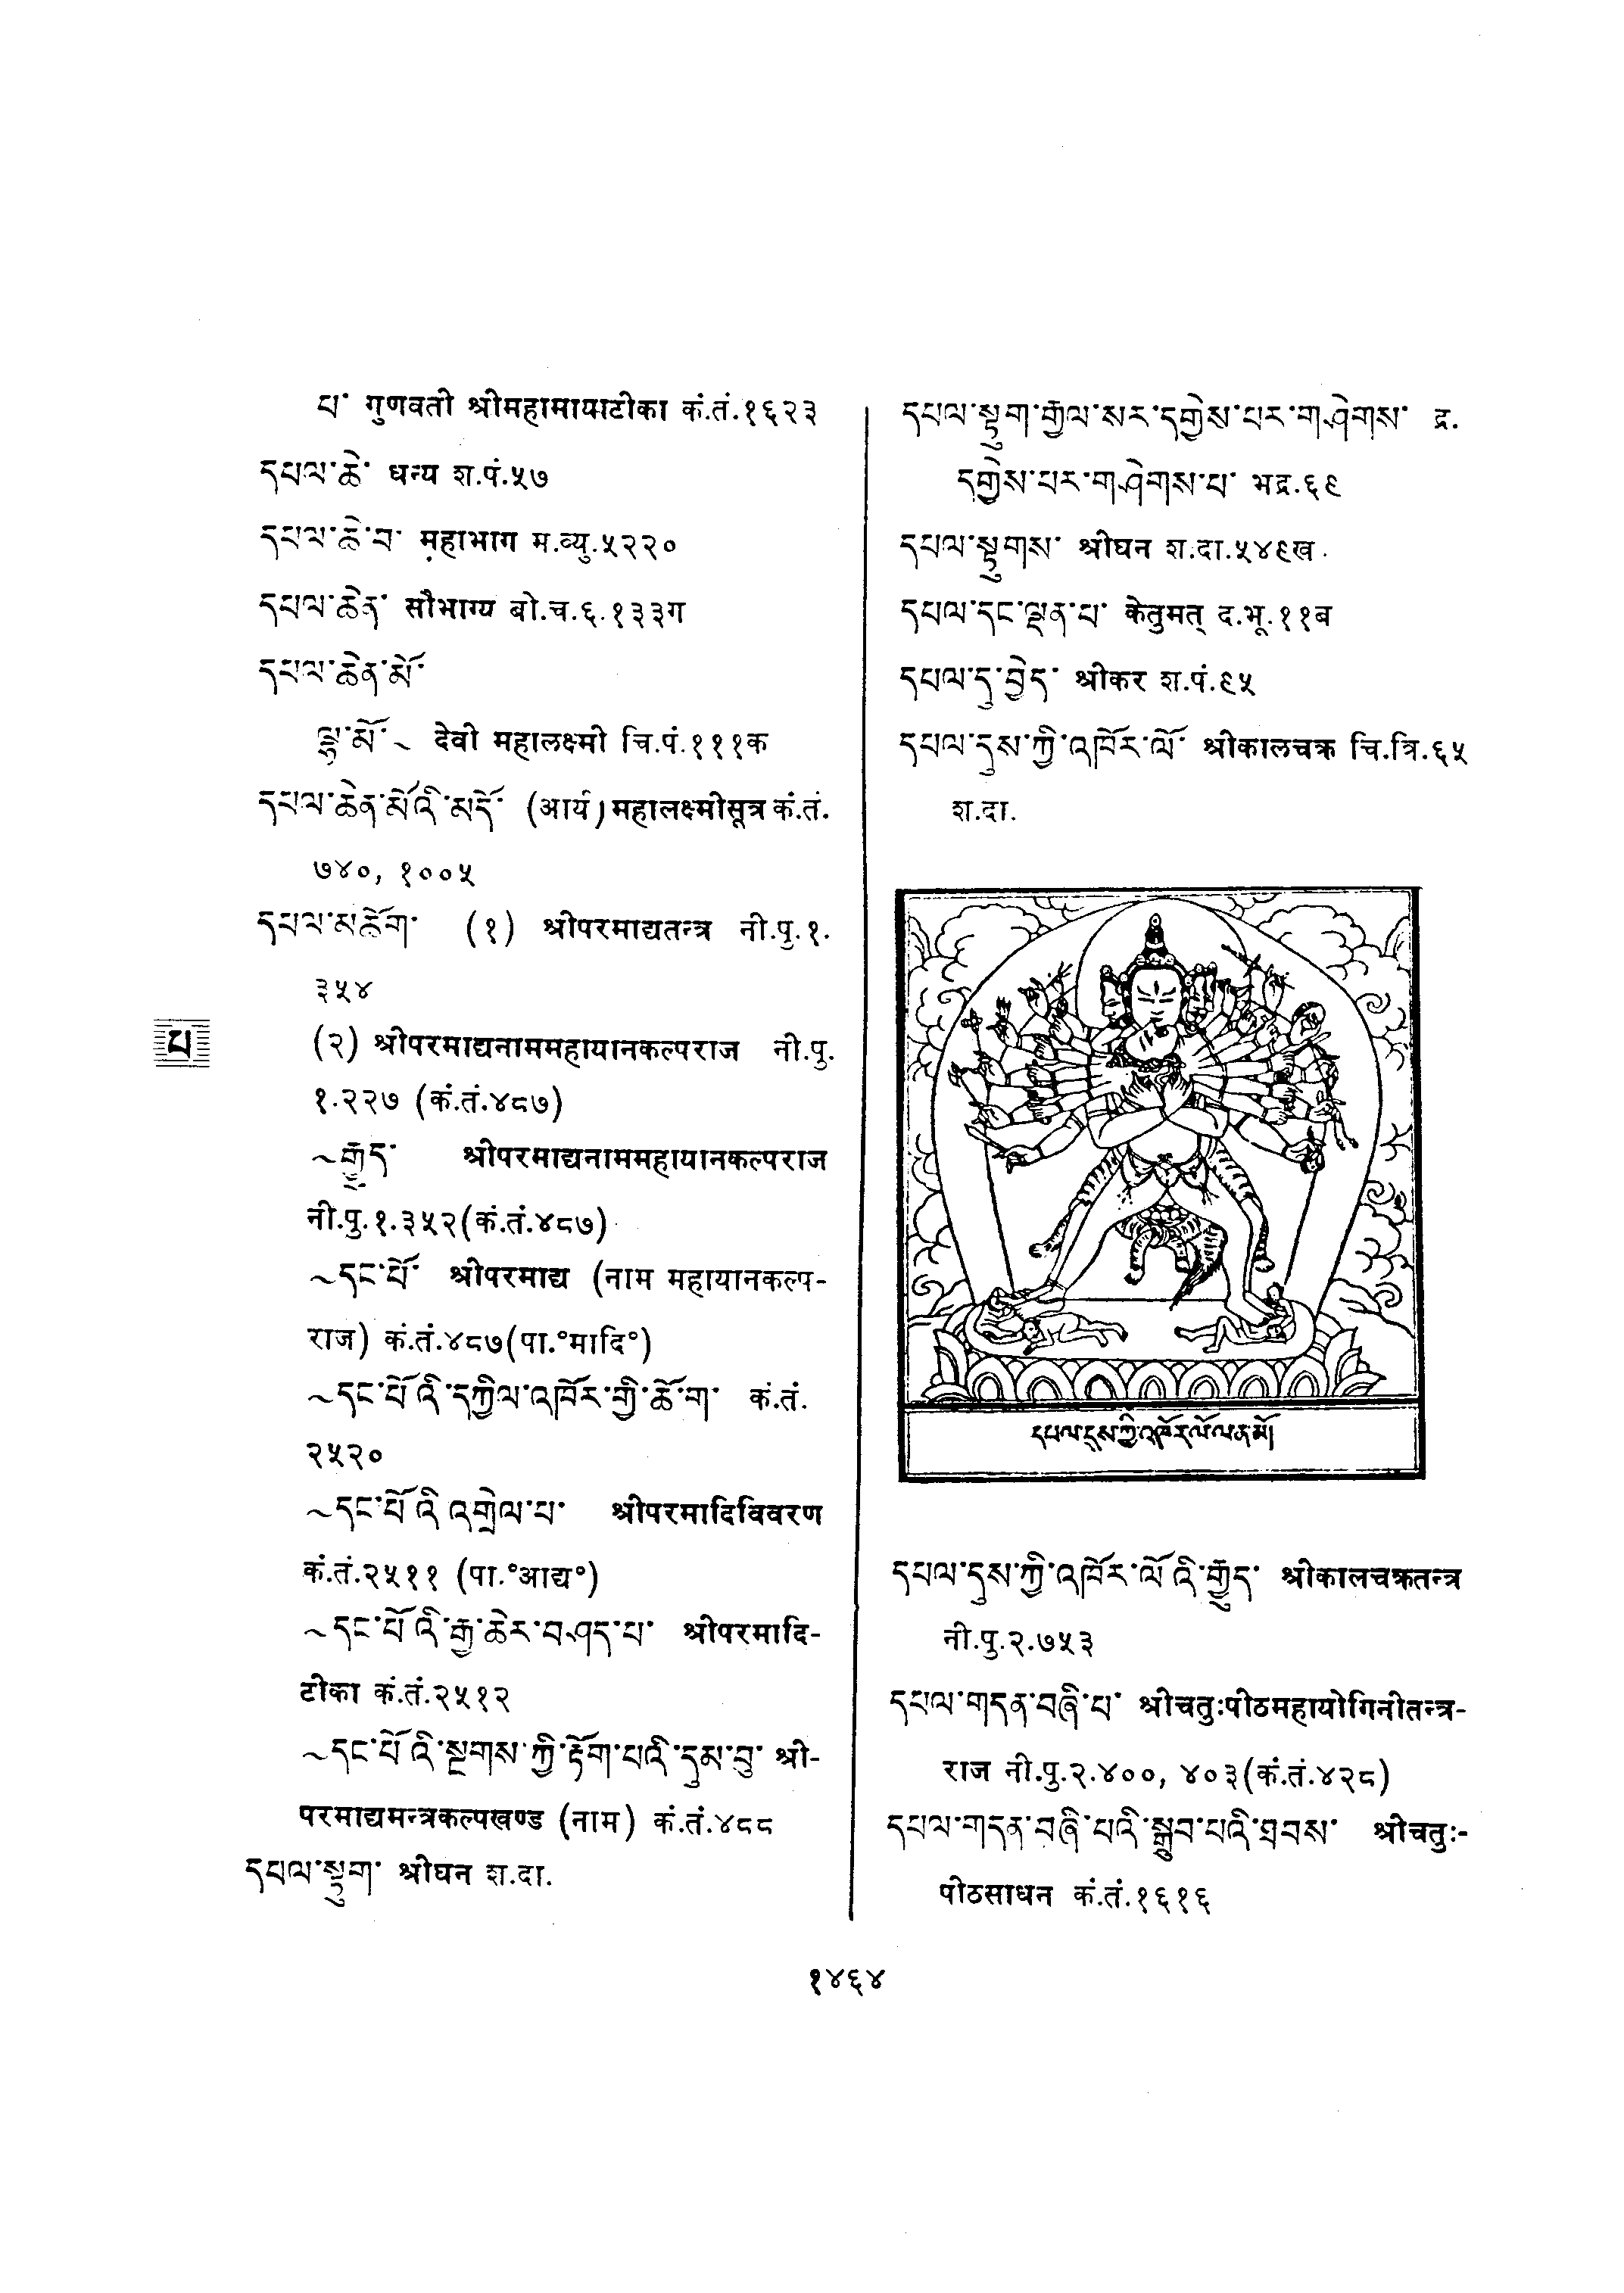 པ་ गुणवती श्रीमहामायाटीका कं.तं.१६२३
དཔལ་ཆེ་ धन्य श.पं.५७
དཔལ་ཆེ་བ་ महाभाग म.व्यु.५२२०
དཔལ་ཆེན་ सौभाग्य बो.च.६.१३३ग
དཔལ་ཆེན་མོ་
ལྷ་མོ་~ देवी महालक्ष्मी चि.पं.१११क
དཔལ་ཆེན་མོའི་མདོ་ (आर्य) महालक्ष्मीसूत्र कं.तं.
७४०, १००५
དཔལ་མཆོག་ (१) श्रीपरमाद्यतन्त्र नी.पु.१.
३५४
(२) श्रीपरमाद्यनाममहायानकल्पराज नी.पु.
१.२२७ (कं.तं.४८७)
~རྒྱུད་ श्रीपरमाद्यनाममहायानकल्पराज
नी.पु.१.३५२(कं.तं.४८७)
~དང་པོ་ श्रीपरमाद्य (नाम महायानकल्प-
राज) कं.तं.४८७(पा.°मादि°)
~དང་པོའི་དཀྱིལ་འཁོར་གྱི་ཆོ་ག་ कं.तं.
२५२०
~དང་པོའི་འགྲེལ་པ་ श्रीपरमादिविवरण
कं.तं.२५११ (पा.°आद्य°)
~དང་པོའི་རྒྱ་ཆེར་བཤད་པ་ श्रीपरमादि-
टीका कं.तं.२५१२
~དང་པོའི་སྔགས་ཀྱི་རྟོག་པའི་དུམ་བུ་ श्री-
परमाद्यमन्त्रकल्पखण्ड (नाम) कं.तं.४८८
དཔལ་སྟུག་ श्रीघन श.दा.
པ
དཔལ་སྟུག་རྒྱལ་སར་དགྱེས་པར་གཤེགས་ द्र.
དགྱེས་པར་གཤེགས་པ་ भद्र.६९
དཔལ་སྟུགས་ श्रीघन श.दा.५४९ख
དཔལ་དང་ལྡན་པ་ केतुमत् द.भू.११ब
དཔལ་དུ་བྱེད་ श्रीकर श.पं.९५
དཔལ་དུས་ཀྱི་འཁོར་ལོ་ श्रीकालचक्र चि.त्रि.६५
श.दा.
དཔལ་དུས་ཀྱི་འཁོར་ལོ་ལ་ན་མོ།
དཔལ་དུས་ཀྱི་འཁོར་ལོའི་རྒྱུད་ श्रीकालचक्रतन्त्र
नी.पु.२.७५३
དཔལ་གདན་བཞི་པ་ श्रीचतुःपीठमहायोगिनीतन्त्र-
राज नी.पु.२.४००, ४०३(कं.तं.४२८)
དཔལ་གདན་བཞི་པའི་སྒྲུབ་པའི་ཐབས་ श्रीचतुः-
पीठसाधन कं.तं.१६१६
१४६४